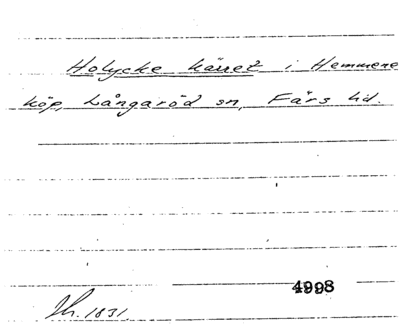 Holycke kärret i Hemmene
köp, Långaröd sn, Färs hd.
4998
Sk. 1831.